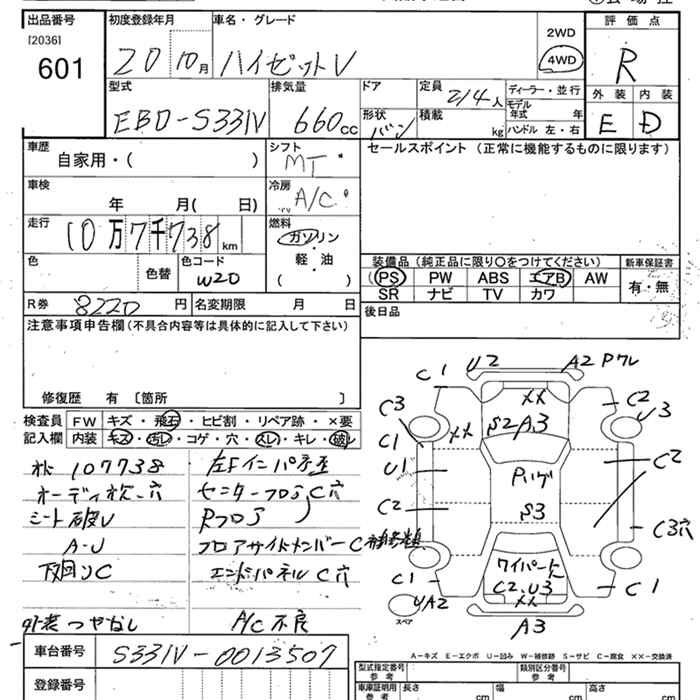 出品番号 初度登録年月 車名・グレード 2WD 評価点
[2036] 601 20 10月 ハイゼットV 4WD R
型式 排気量 ドア 定員 2/4人 ディーラー・並行 外装 内装
EBD-S331V 660cc 形状 バン 積載 kg モデル年式 年 ハンドル 左・右 E D
車歴 シフト セールスポイント (正常に機能するものに限ります)
自家用・( ) MT
車検 冷房
年 月( 日) A/C
走行 燃料
10万7千738km ガソリン
色 色替 色コード 軽・油 装備品(純正品に限り○をつけてください) 新車保証書
W20 ( ) PS PW ABS エアB AW 有・無
SR ナビ TV カワ
R券 8220円 名変期限 月 日 後日品
注意事項申告欄(不具合内容等は具体的に記入して下さい)
修復歴 有 〔箇所 〕
検査員 FW キズ・飛石・ヒビ割・リペア跡・×要
記入欄 内装 キズ・汚レ・コゲ・穴・スレ・キレ・破レ
107738 左Fインパネ
オーディオ欠、穴 センターフロアC穴
シート破レ Rフロア
A-U フロアサイドメンバーC
下回りC エンドパネルC穴
外装つやなし A/C不良
車台番号 S331V-0013507
登録番号
C1 U2 A2 Pクレ
C3 XX C2
C1 XX S2A3 U3
U1 C2
C2 S3
C3穴
C1 C2.U3 C1
XX
スペア UA2 A3
A-キズ E-エクボ U-凹み W-補修跡 S-サビ C-腐食 XX-交換済
型式指定番号 参考 類別区分番号 参考
車庫証明用 参考 長さ cm 幅 cm 高さ cm